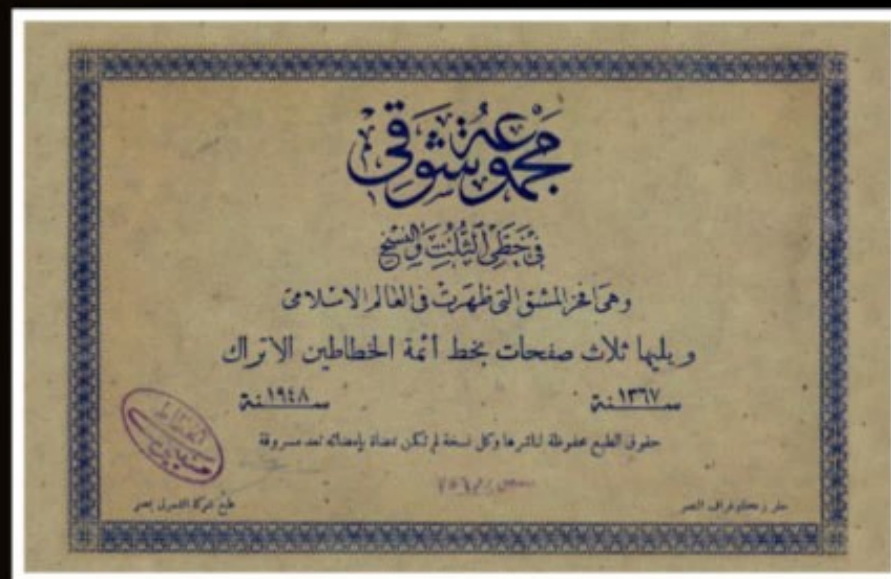 مجموعة شوقي
في خطي الثلث والنسخ
وهي أفخر المشق التي ظهرت في العالم الاسلامي
ويليها ثلاث صفحات بخط أئمة الخطاطين الاتراك
سنة ١٣٦٧ سنة ١٩٤٨
حقوق الطبع محفوظة لناشرها وكل نسخة لم تكن ممضاة بإمضائه تعد مسروقة
حفر
طبع شركة التمدن بمصر
الخطاط